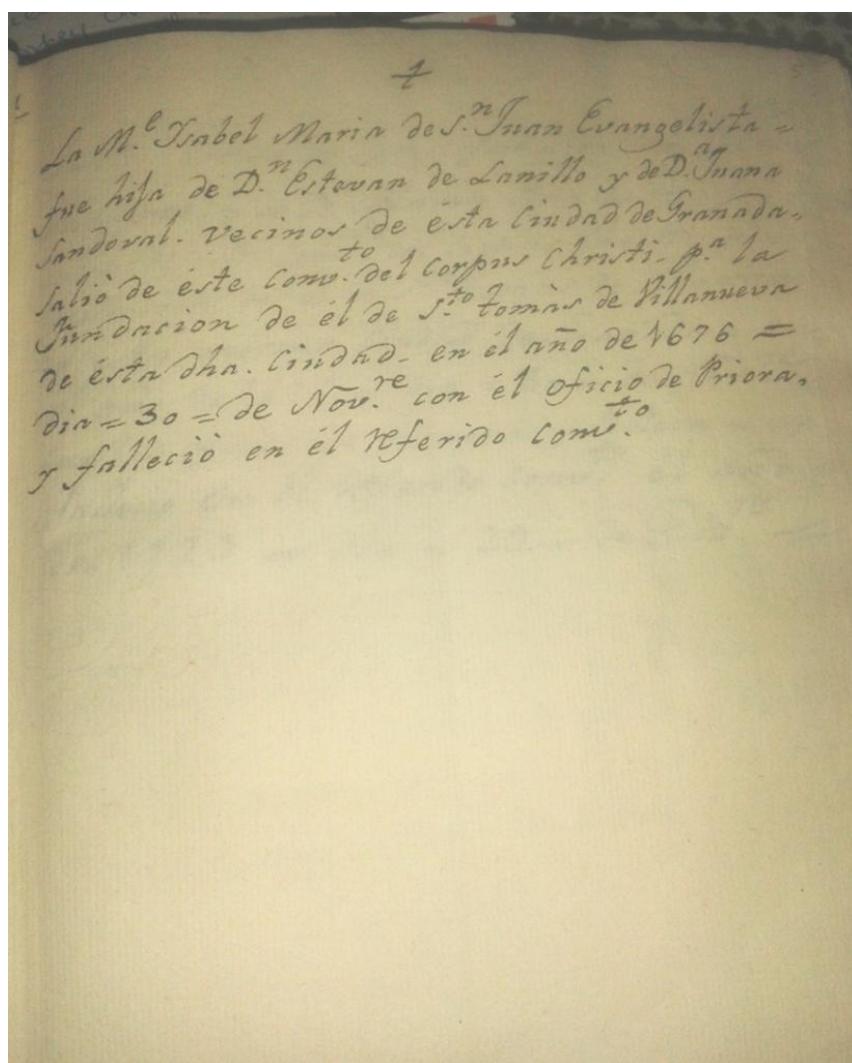 La M.e Ysabel Maria de S.n Juan Evangelista =
fue hija de D.n Estevan de Lanillo y de D.a Juana
Sandoval. vecinos de ésta Ciudad de Granada.
salió de éste Conv.to del Corpus Christi. p.a la
Fundacion de él de S.to tomàs de Villanueva
de ésta dha. Ciudad. en él año de 1676 =
dia = 30 = de Nov.re con él oficio de Priora.
y falleció en él referido Conv.to